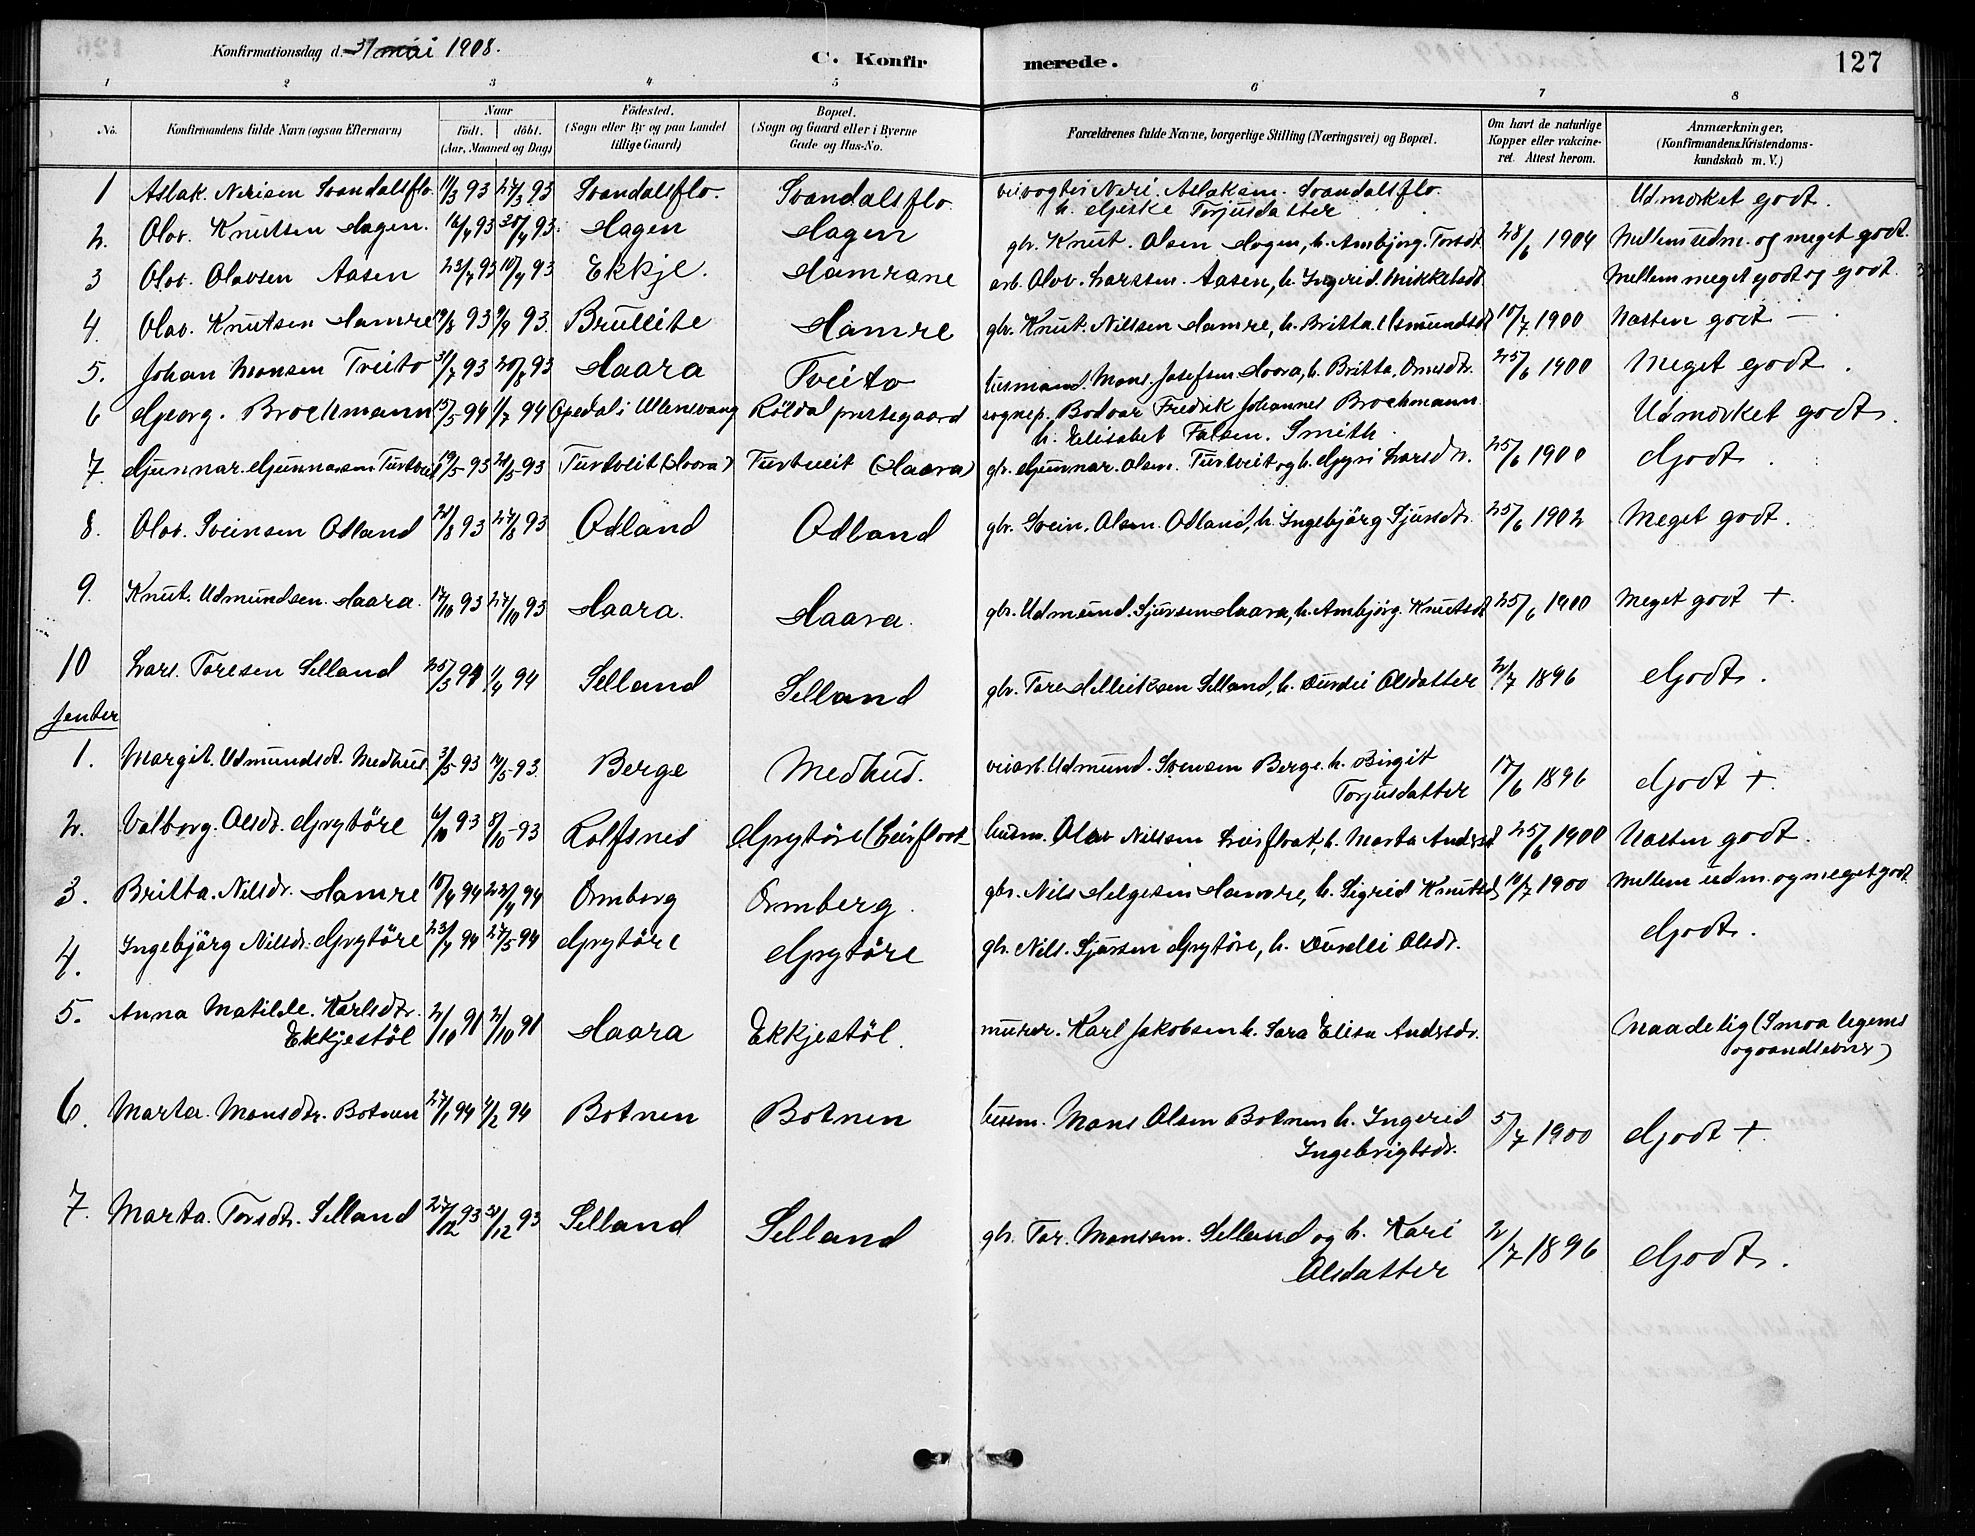 Konfirmationsdag d. 31 mai 1908.
C. Konfirmerede.
127
1 2 3 4 5 6 7 8
No.
Konfirmandens fulde Navn (ogsaa Efternavn)
Naar
födt. döbt.
(Aar, Maaned og Dag)
Födested.
(Sogn eller By og paa Landet
tillige Gaard)
Bopæl.
(Sogn og Gaard eller i Byerne
Gade og Hus-No.
Forældrenes fulde Navne, borgerlige Stilling (Næringsvei) og Bopæl.
Om havt de naturlige
Kopper eller vakcine-
ret. Attest herom.
Anmærkninger,
(Konfirmandens Kristendoms-
kundskab m. V.)
1 Aslak. Nerisen Svandalsflo. 11/3 93 27/3 93 Svandalsflo. Svandalsflo veivogter Neri Aslaksen. Svandalsflo. Udmærket godt.
h. Gjeske Torjusdatter
2. Olav. Knutsen Hagen. 16/4 93 30/4 93. Hagen Hagen gbr. Knut. Olsen Hagen, h. Ambjørg. Torsdt 28/6 1904 Mellem udm. og meget godt.
3 Olav. Olavsen Aasen 23/4 93 Ekkje. Hamrane arb. Olav. Larssen. Aasen, h. Ingerid. Mikkelsdt Mellem meget godt og godt.
4. Olav. Knutsen Hamre 19/8 93 9/9 93. Brullite Hamre gbr. Knut. Nilssen Hamre, h. Britta Asmundsdt 10/7 1900 Næsten godt —
5. Johan Monsen Tveito 31/7 93 20/8 93 Haara Tveito husmand. Mons. Josefsen Haara, h. Britta. Ormsdtr. 25/6 1900 Meget godt.
6 Georg. Brochmann 15/5 94 1/7 94 Opedal i Ullensvang Röldal prestegaard sognep. Bodvar Fredrik Johannes Brochmann Udmærket godt.
h. Elisabet Falsen. Smith.
7. Gunnar. Gunnarsen Turtveit 19/5 93 21/5 93 Turtveit (Haara) Turtveit (Haara) gbr. Gunnar. Olsen. Turtveit og h. Gyri Larsdtr. 25/6 1900 Godt.
8. Olav. Sveinsen Odland 21/8 93 27/8 93 Odland Odland gbr. Svein. Olsen. Odland, h. Ingebjörg Sjursdtr. 25/6 1902 Meget godt.
9. Knut. Udmundsen. Haara. 17/10 93 27/10 93 Haara. Haara. gbr. Udmund. Sjursen Haara, h. Ambjörg. Knutsdt 25/6 1900 Meget godt +.
10 Lars. Toresen Selland 25/3 94 1/4 94 Selland Selland gbr. Tore Helliksen Selland, h. Durdei Olsdatter 2/7 1896 Godt.
Jenter
1. Margit. Udmundsdt. Medhus. 3/5 93 14/5 93. Berge Medhus. veiarb. Udmund. Svensen Berge. h. Birgit 17/6 1896 Godt +.
Torjusdatter
2. Valborg. Olsdt. Grytöre 6/10 93 8/10 93 Rolfsnes Grytöre (Leirfloot husm. Olav Nilssen Leirfloat, h. Marta Andrsdt 25/6 1900 Næsten godt.
3. Britta. Nilsdr. Hamre 15/4 94 22/4 94 Ormberg Ormberg. gbr. Nils Helgesen Hamre, h. Sigrid Knutsd. 10/7 1900 Mellem udm. og meget godt.
4. Ingebjörg Nilsdr. Grytöre 23/4 94 27/5 94 Grytöre Grytöre gbr. Nils. Sjursen Grytöre, h. Durdei Olsdr. Godt.
5. Anna Matilde. Karlsdtr. 2/10 91 2/10 91 Haara Ekkjestöl. murer. Karl Jakobsen h. Sara Elisa Andrsdr. Naadelig (Smaa legems
Ekkjestöl og aandsevner)
6. Marta. Monsdtr. Botnen 27/1 94 4/2 94 Botnen Botnen husm. Mons Olsen Botnen h. Ingerid 5/7 1900 Godt +.
Ingebrigtsdr.
7. Marta. Torsdtr. Selland 27/12 93 31/12 93 Selland Selland gbr. Tor. Monsen. Selland og h. Kari 2/7 1896 Godt.
Olsdatter